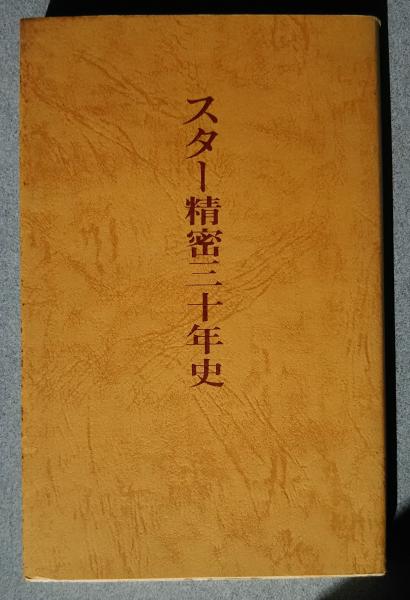 スター精密三十年史